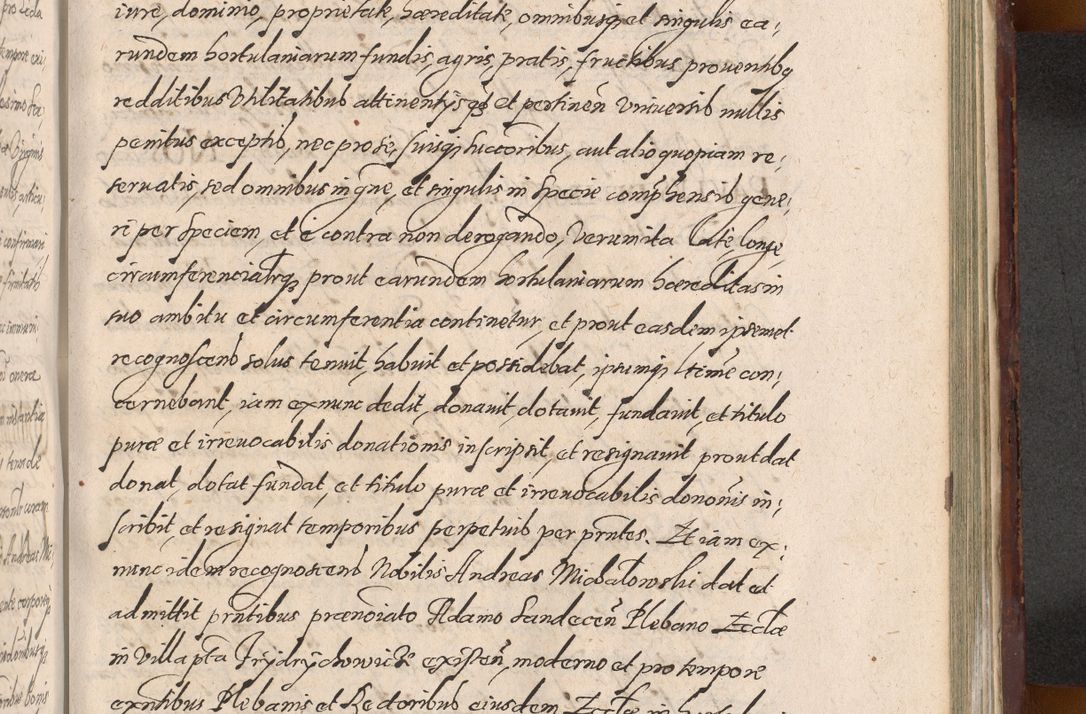 iure, dominio, proprietate, hæreditate, omnibusq, et singulis ea,
rundem hortulaniarum fundis, agris, pratis, fructibus prouentibq
redditibus Vtilitatibus attinentijs q et pertinen Vniuersis nullis
penitus exceptis, nec pro se, suisq, succoribus, aut alio quopiam re,
seruatis, sed omnibus in gne, et singulis in specie comphensis gene,
ri per speciem, et è contra non derogando, Verum ita late longe
circumferencialrq, prout earundem hortulaniarum hæreditas in
suo ambitu et circumferentia continetur, et prout easdem ipsemet
recognoscens solus tenuit, habuit et possidebat, ipsumq, ltime con,
cernebant, iam ex nunc dedit, donauit, dotauit, fundauit, et titulo
puræ et irreuocabilis donationis inscripsit, et resignauit prout dat
donat, dotat fundat, et titulo puræ et irreuocabilis dononis in,
scribit, et resignat temporibus perpetuis per pntes. Et iam ex,
nunc idem recognoscens Nobilis Andreas Michałowski dat et
admittit pntibus prænoiato Adamo Sandecen Plebano Ecclæ
in Villa pta Frydrychowice existen, moderno et pro tempore
exntibus Plebanis et Rectoribus eiusdem Ecclæ in